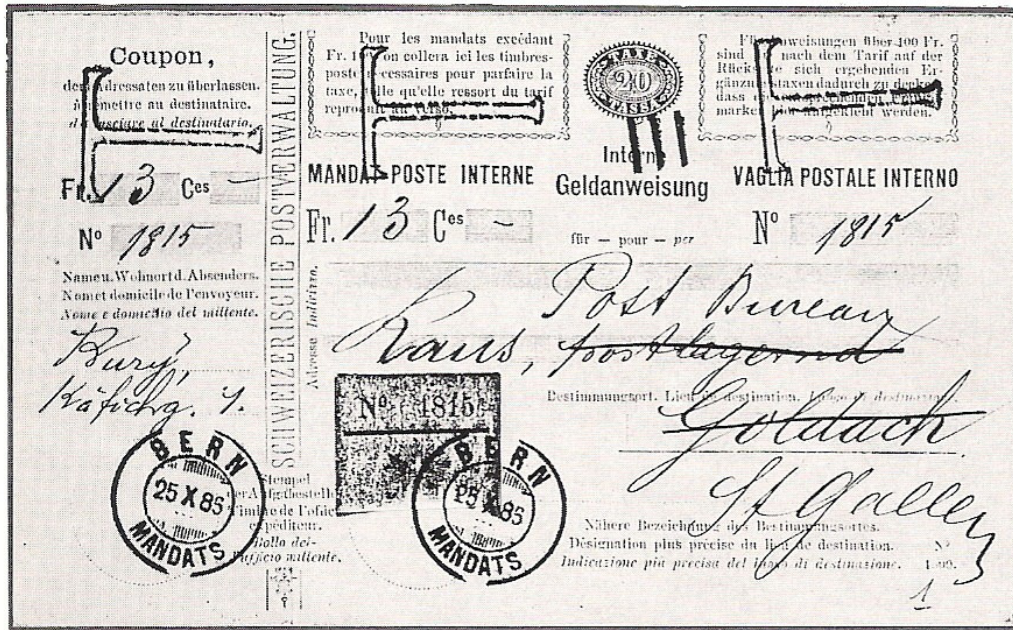 Coupon,
dem Adressaten zu überlassen.
à remettre au destinataire.
da lasciare al destinatario.
Fr. 13 Ces —
No 1815
Name u. Wohnort d. Absenders.
Nom et domicile de l'envoyeur.
Nome e domicilio del mittente.
Bury,
Käfichg. 1.
BERN
25 X 86
MANDATS
SCHWEIZERISCHE POSTVERWALTUNG.
Pour les mandats excédant
Fr. 100 on collera ici les timbres-
poste nécessaires pour parfaire la
taxe, telle qu'elle ressort du tarif
reproduit au verso.
TAXE
20
TASSA
Für Anweisungen über 100 Fr.
sind die nach dem Tarif auf der
Rückseite sich ergebenden Er-
gänzungstaxen dadurch zu decken,
dass die entsprechenden
marken hier aufgeklebt werden.
MANDAT-POSTE INTERNE
Interne
Geldanweisung
VAGLIA POSTALE INTERNO
Fr. 13 Ces —
für — pour — per
No 1815
Adresse Indirizzo.
Post Bureau
Kaus, postlagernd
Bestimmungsort. Lieu de destination. Luogo di destinazione.
Goldach
St Gallen
No 1815
BERN
25 X 86
MANDATS
Stempel
der Aufgabestelle
Timbre de l'office
expéditeur.
Bollo dell'
ufficio mittente.
Nähere Bezeichnung des Bestimmungsortes.
Désignation plus précise du lieu de destination.
Indicazione più precisa del luogo di destinazione.
1